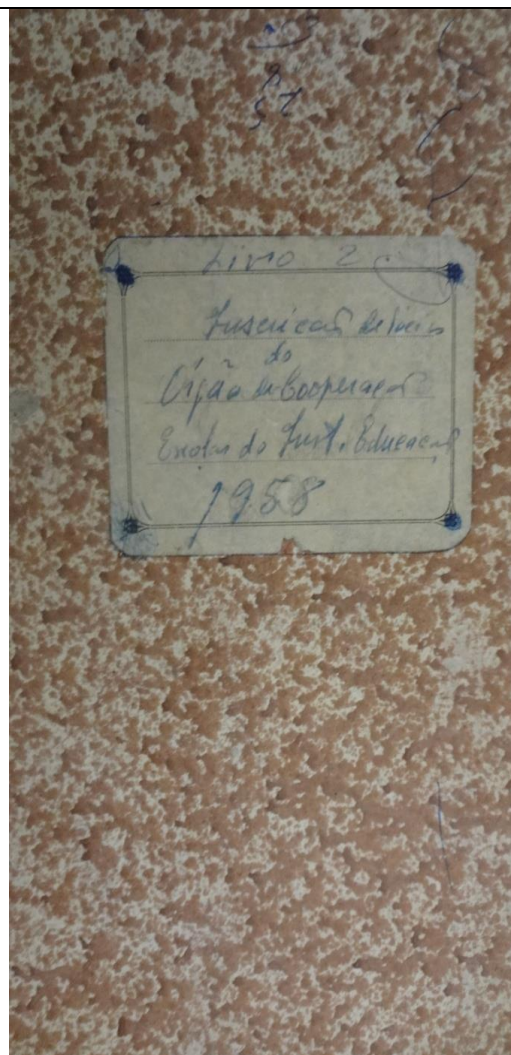 Livro 2
Inscrição de Sócios
do
Órgão de Cooperação
Escolar do Inst. Educação
1958